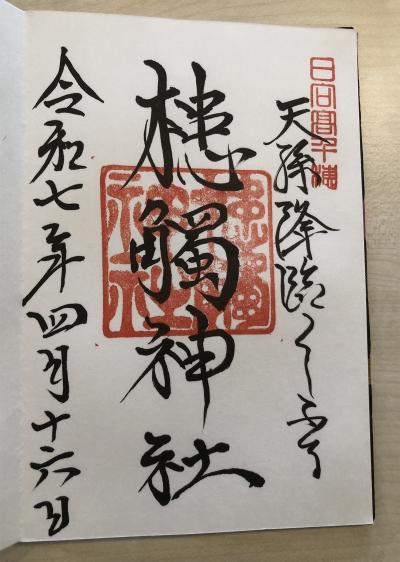 日向高千穂
天孫降臨くしふる
槵觸神社
令和七年四月十六日